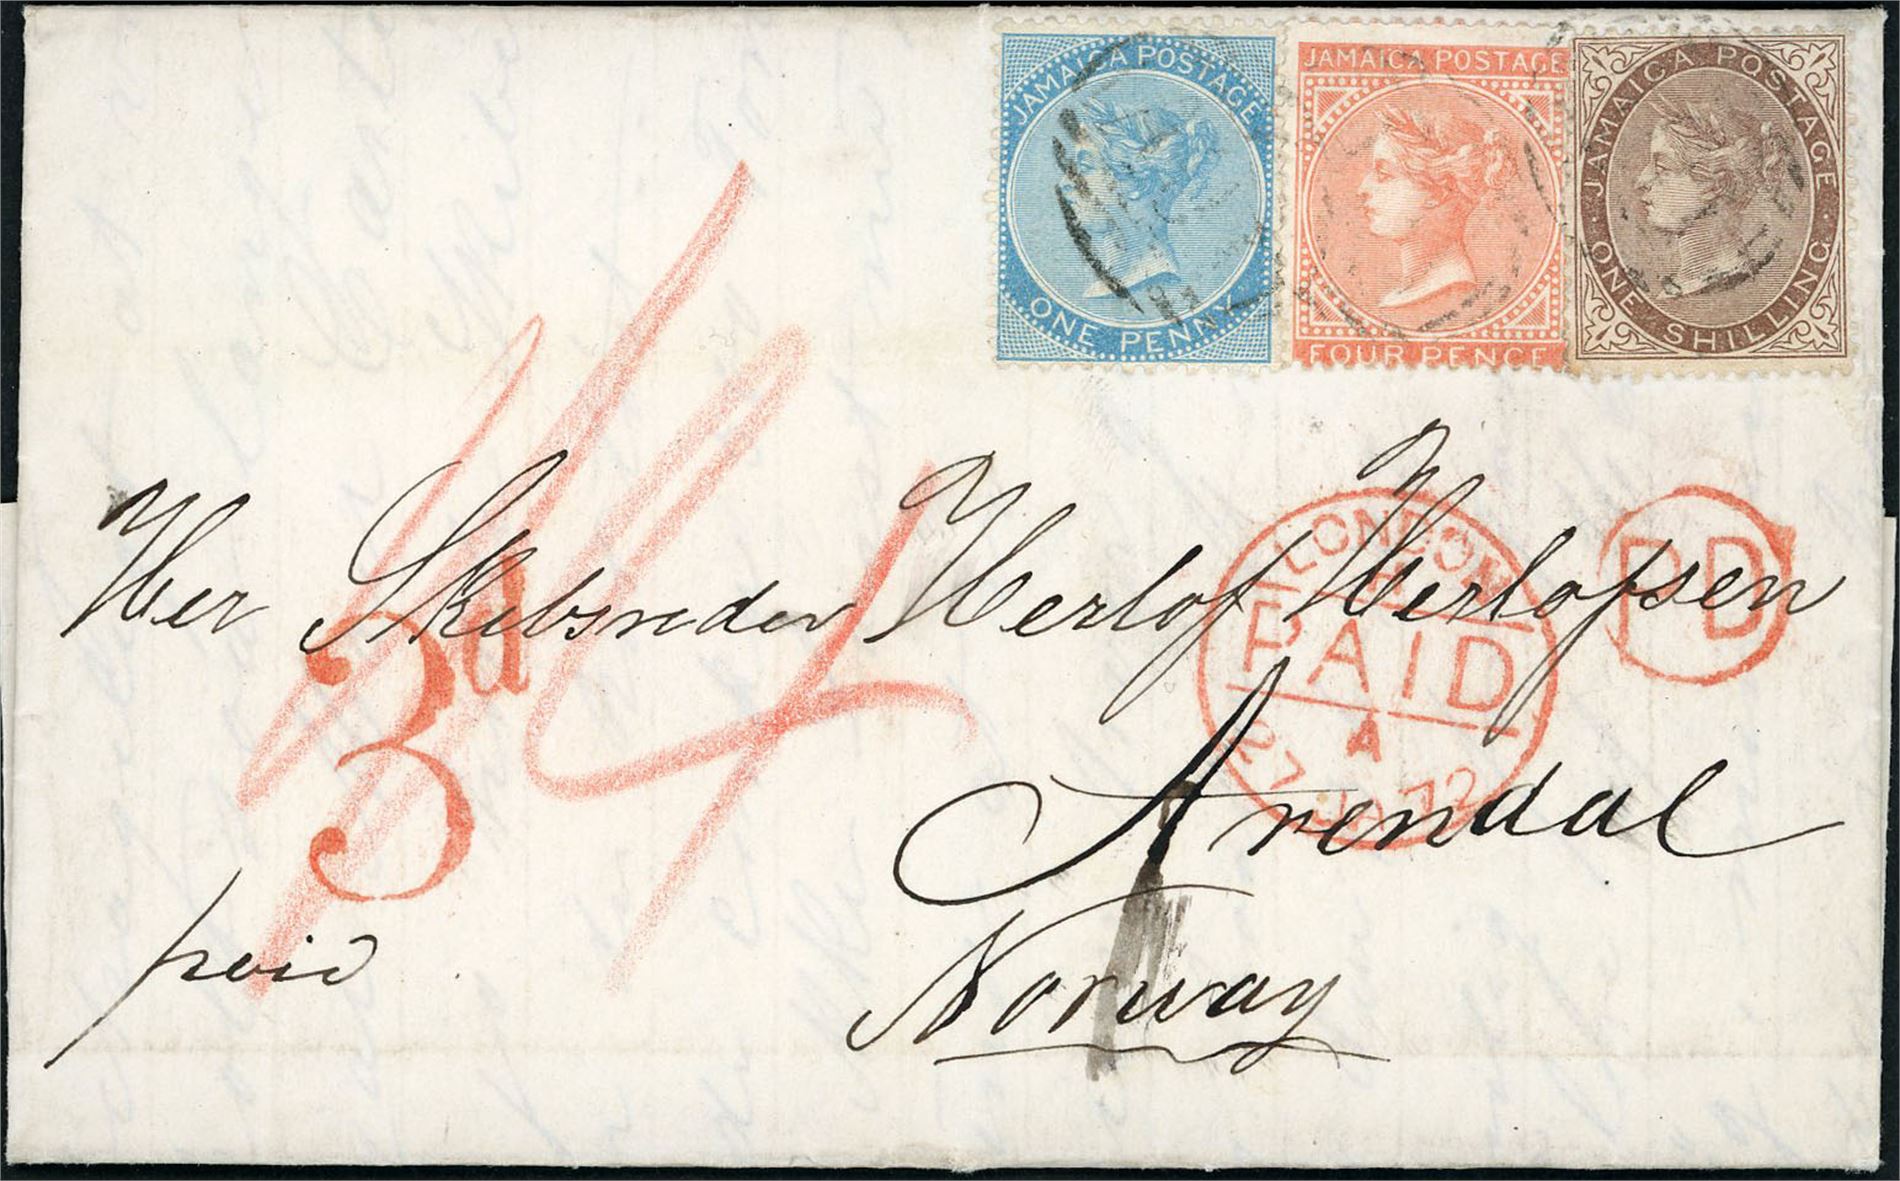 JAMAICA POSTAGE
ONE PENNY
JAMAICA POSTAGE
FOUR PENCE
JAMAICA POSTAGE
ONE SHILLING
Her Skibsreder Herlof Herlofsen
LONDON
PAID
A
27 JA 72
PD
3d
Arendal
Norway
paid